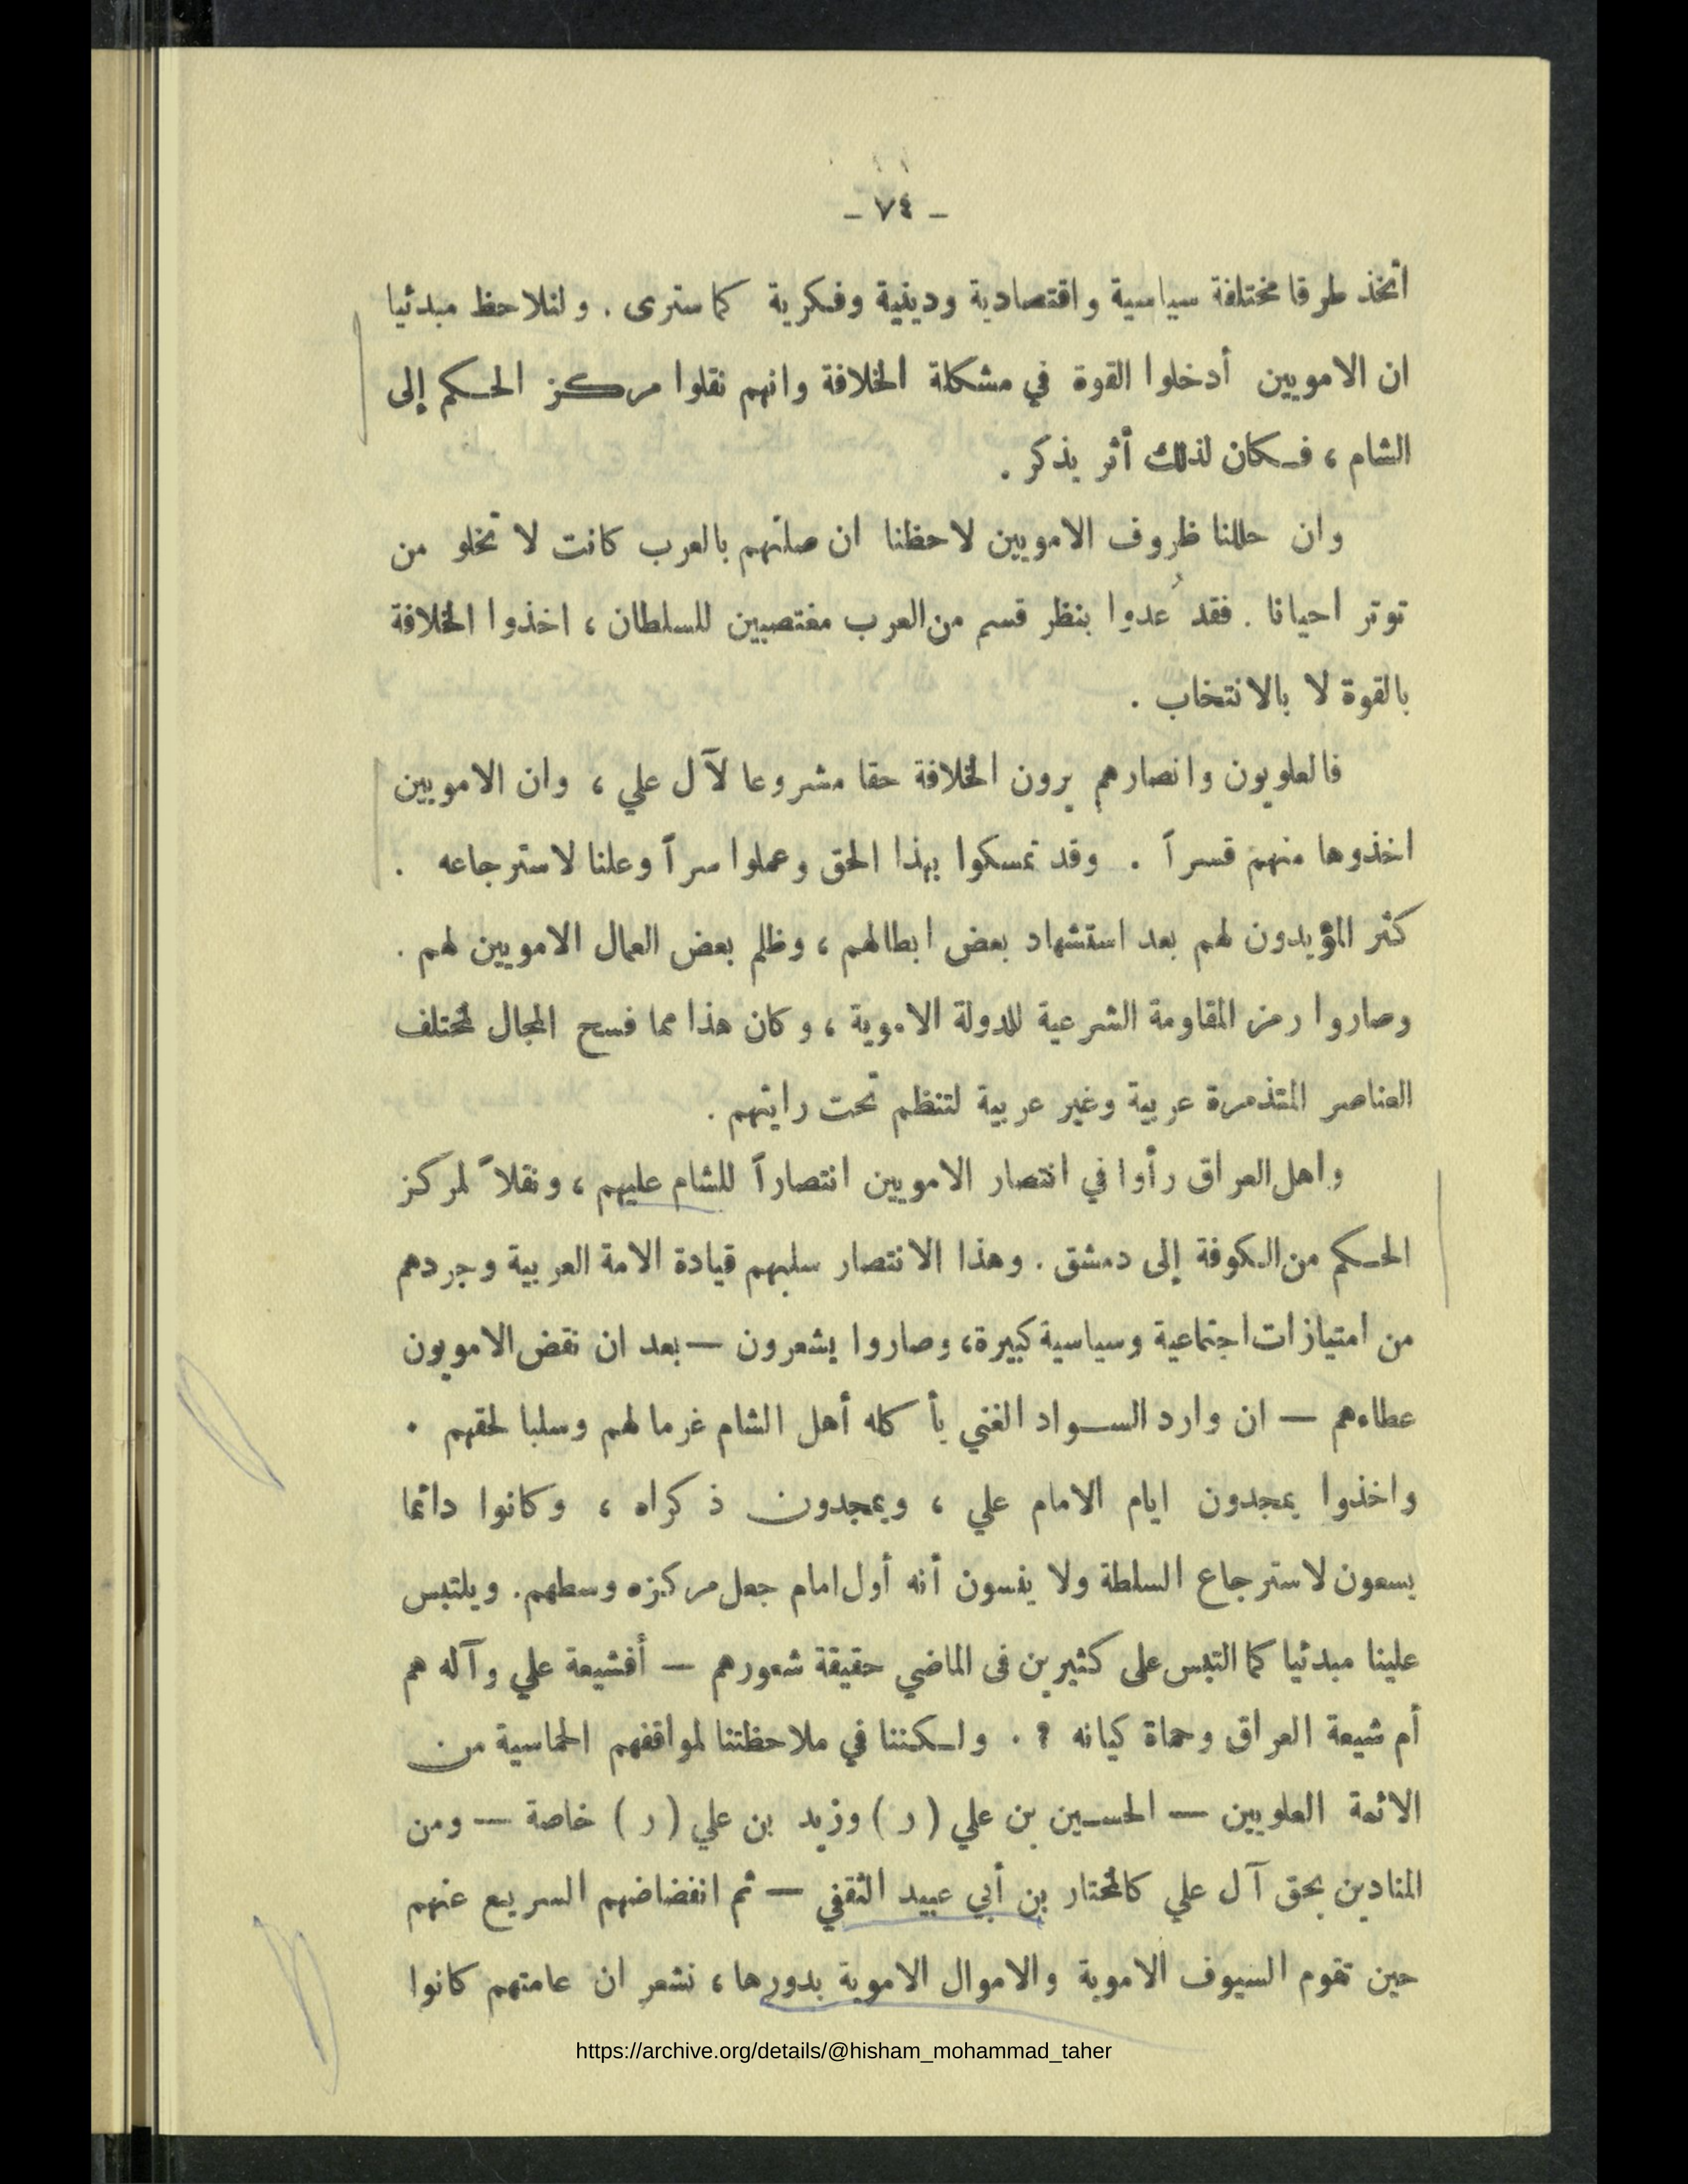 - ٧٤ -
اتخذ طرقا مختلفة سياسية واقتصادية ودينية وفكرية كما سنرى . ولنلاحظ مبدئيا
ان الامويين أدخلوا القوة في مشكلة الخلافة وانهم نقلوا مركز الحكم إلى
الشام ، فكان لذلك أثر يذكر .
وان حللنا ظروف الامويين لاحظنا ان صلتهم بالعرب كانت لا تخلو من
توتر احيانا . فقد عُدوا بنظر قسم من العرب مغتصبين للسلطان ، اخذوا الخلافة
بالقوة لا بالانتخاب .
فالعلويون وانصارهم يرون الخلافة حقا مشروعا لآل علي ، وان الامويين
اخذوها منهم قسراً . وقد تمسكوا بهذا الحق وعملوا سراً وعلنا لاسترجاعه .
كثر المؤيدون لهم بعد استشهاد بعض ابطالهم ، وظلم بعض العمال الامويين لهم .
وصاروا رمز المقاومة الشرعية للدولة الاموية ، وكان هذا مما فسح المجال لمختلف
العناصر المتذمرة عربية وغير عربية لتنظم تحت رايتهم .
واهل العراق رأوا في انتصار الامويين انتصاراً للشام عليهم ، ونقلاً لمركز
الحكم من الكوفة إلى دمشق . وهذا الانتصار سلبهم قيادة الامة العربية وجردهم
من امتيازات اجتماعية وسياسية كبيرة، وصاروا يشعرون — بعد ان نقض الامويون
عطاءهم — ان وارد السواد الغني يأكله أهل الشام غرما لهم وسلبا لحقهم .
واخذوا يمجدون ايام الامام علي ، ويمجدون ذكراه ، وكانوا دائما
يسعون لاسترجاع السلطة ولا ينسون أنه أول امام جعل مركزه وسطهم. ويلتبس
علينا مبدئيا كما التبس على كثيرين في الماضي حقيقة شعورهم — أفشيعة علي وآله هم
أم شيعة العراق وحماة كيانه ؟ . ولكننا في ملاحظتنا لمواقفهم الحماسية من
الائمة العلويين — الحسين بن علي ( ر ) وزيد بن علي ( ر ) خاصة — ومن
المنادين بحق آل علي كالمختار بن أبي عبيد الثقفي — ثم انفضاضهم السريع عنهم
حين تقوم السيوف الاموية والاموال الاموية بدورها ، نشعر ان عامتهم كانوا
https://archive.org/details/@hisham_mohammad_taher